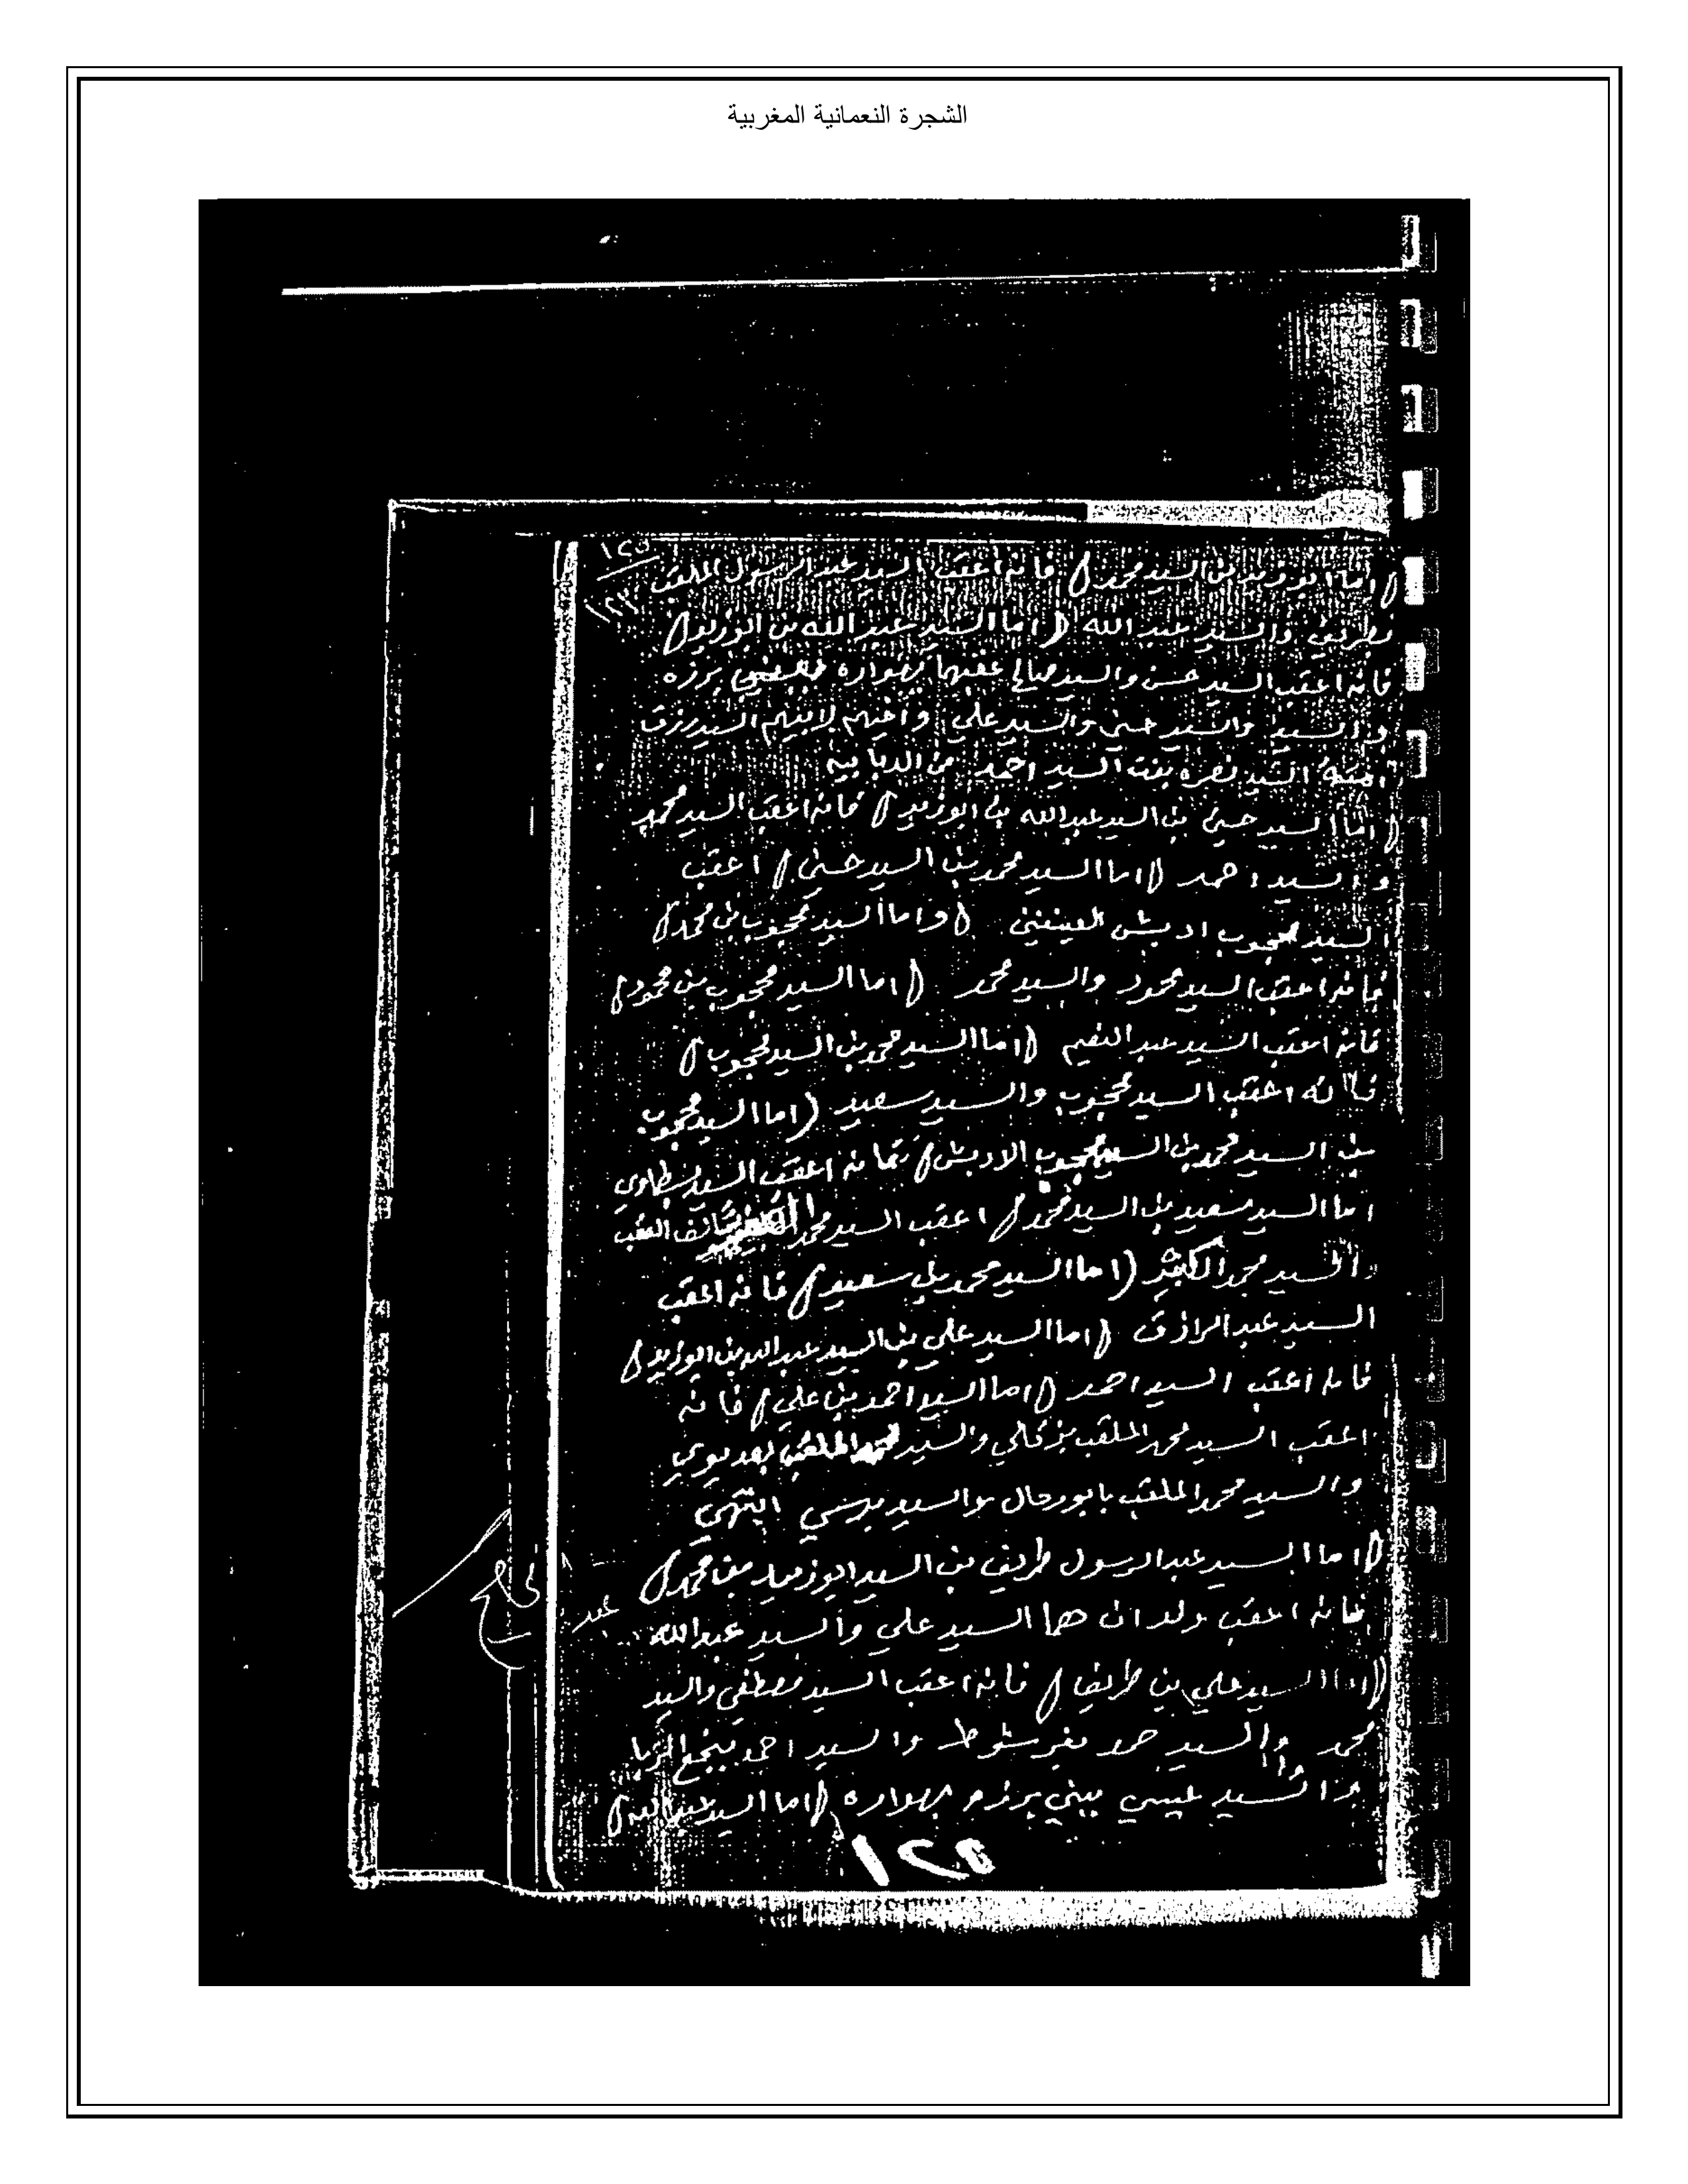 الشجرة النعمانية المغربية
١٢٥
١٢٣
(اما ابوزيد بن السيد محمد) فانه اعقب السيد عبد الرسول الملقب
بطريف والسيد عبد الله (اما السيد عبد الله بن ابوزيد)
فانه اعقب السيد حسن والسيد صالح عقبهما بهواره ببني برزه
والسيد حسين والسيد علي واخيهم لابيهم السيد رزق
السيد نصره بنت السيد احمد من الدبابيه
(اما السيد حسين بن السيد عبد الله بن ابوزيد) فانه اعقب السيد محمد
والسيد احمد (اما السيد محمد بن السيد حسين) اعقب
السيد محجوب (واما السيد محجوب بن محمد)
فانه اعقب السيد محمود والسيد محمد (اما السيد محجوب بن محمود)
فانه اعقب السيد عبد النعيم (اما السيد محمد بن السيد محجوب)
فانه اعقب السيد محجوب والسيد سعيد (اما السيد محجوب
بن السيد محمد بن السيد محجوب الادبش) فانه اعقب السيد بسطاوي
اما السيد سعيد بن السيد محمد) اعقب السيد محمد
والسيد محمد (اما السيد محمد بن سعيد) فانه اعقب
السيد عبد الرازق (اما السيد علي بن السيد عبد الله بن ابوزيد)
فانه اعقب السيد احمد (اما السيد احمد بن علي) فانه
اعقب السيد محمد الملقب والسيد محمد الملقب
والسيد محمد الملقب بابورحال والسيد انتهى
(اما السيد عبد الرسول طريف بن السيد ابوزيد بن محمد)
فانه اعقب ولدان هما السيد علي والسيد عبد الله
(اما السيد علي بن طريف) فانه اعقب السيد مصطفى والسيد
محمد والسيد حمد بفرشوط والسيد احمد بنجع
والسيد عيسى ببني برزه بهواره (اما السيد عبد الله)
١٢٥